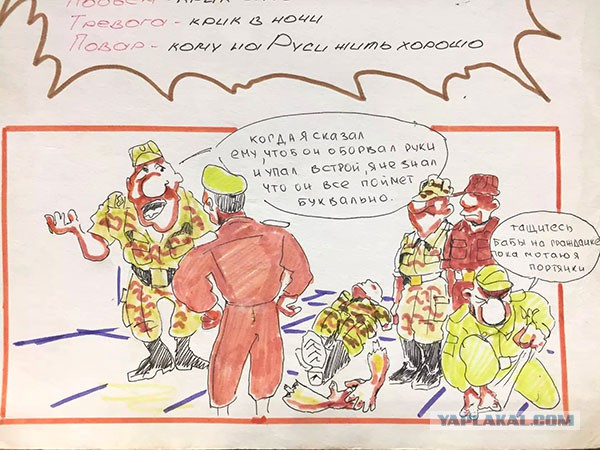 Тревога - крик в ночи
Повар - кому на Руси жить хорошо
когда я сказал
ему, чтоб он оборвал руки
и упал в строй, я не знал
что он все поймет
буквально.
тащитесь
бабы на гражданке
пока мотаю я
портянки
YAPLAKAL.COM